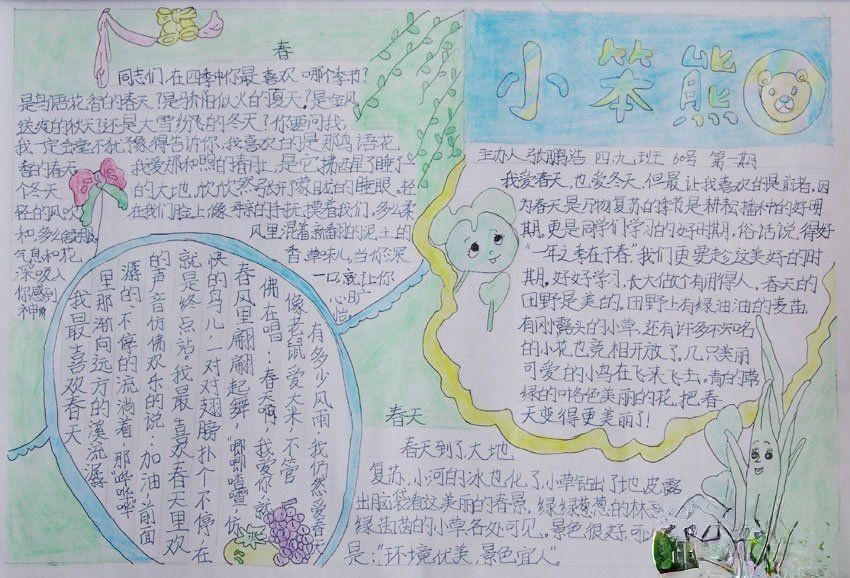 小笨熊
主办人张鹏浩 四、九班 60号 第一期
春
同志们,在四季中你最喜欢哪个季节?
是鸟语花香的春天?是骄阳似火的夏天?是金风
送爽的秋天?还是大雪纷飞的冬天?你要问我,
我一定会毫不犹豫得告诉你,我喜欢的是那鸟语花
香的春天。 我爱那和照的春阳,是它拂醒了睡了一
个冬天 的大地,欣欣然张开了朦胧的睡眼。轻
轻的风吹 在我们脸上像母亲的手抚摸着我们。多么柔
和,多么舒服。 风里混着新翻的泥土的
气息和花 香、草味儿,当你深
深吸入 一口,就让你
你感到 心旷
神 怡
我爱春天,也爱冬天,但最让我喜欢的是前者,因
为春天是万物复苏的季节是耕松播种的好时
期,更是同学们学习的好时期。俗话说得好
“一年之季在于春”我们更要趁这美好的时
期。好好学习,长大做个有用得人。春天的
田野是美的。田野上有绿油油的麦苗,
有刚露头的小草,还有许多不知名
的小花也竞相开放了。几只美丽
可爱的小鸟在飞来飞去。青的草
绿的叶各色美丽的花,把春
天变得更美丽了!
有多少风雨,我仍然爱春天
像老鼠爱大米,不管
佛在唱:春天啊,我爱你,就
春风里翩翩起舞,“唧唧喳喳”仿
快的鸟儿,一对对翅膀扑个不停在
就是终点站,我最喜欢春天里欢
的声音仿佛欢乐的说:加油,前面
潺的,不停的流淌着,那“哗哗哗”
里那渐向远方的溪流,潺
我最喜欢春天
春天
春天到了,大地
复苏,小河的冰也化了,小草钻出了地皮,露
出脑袋看这美丽的春景,绿绿葱葱的林
绿油油的小草,各处可见。景色很好,可
是:“环境优美,景色宜人”。